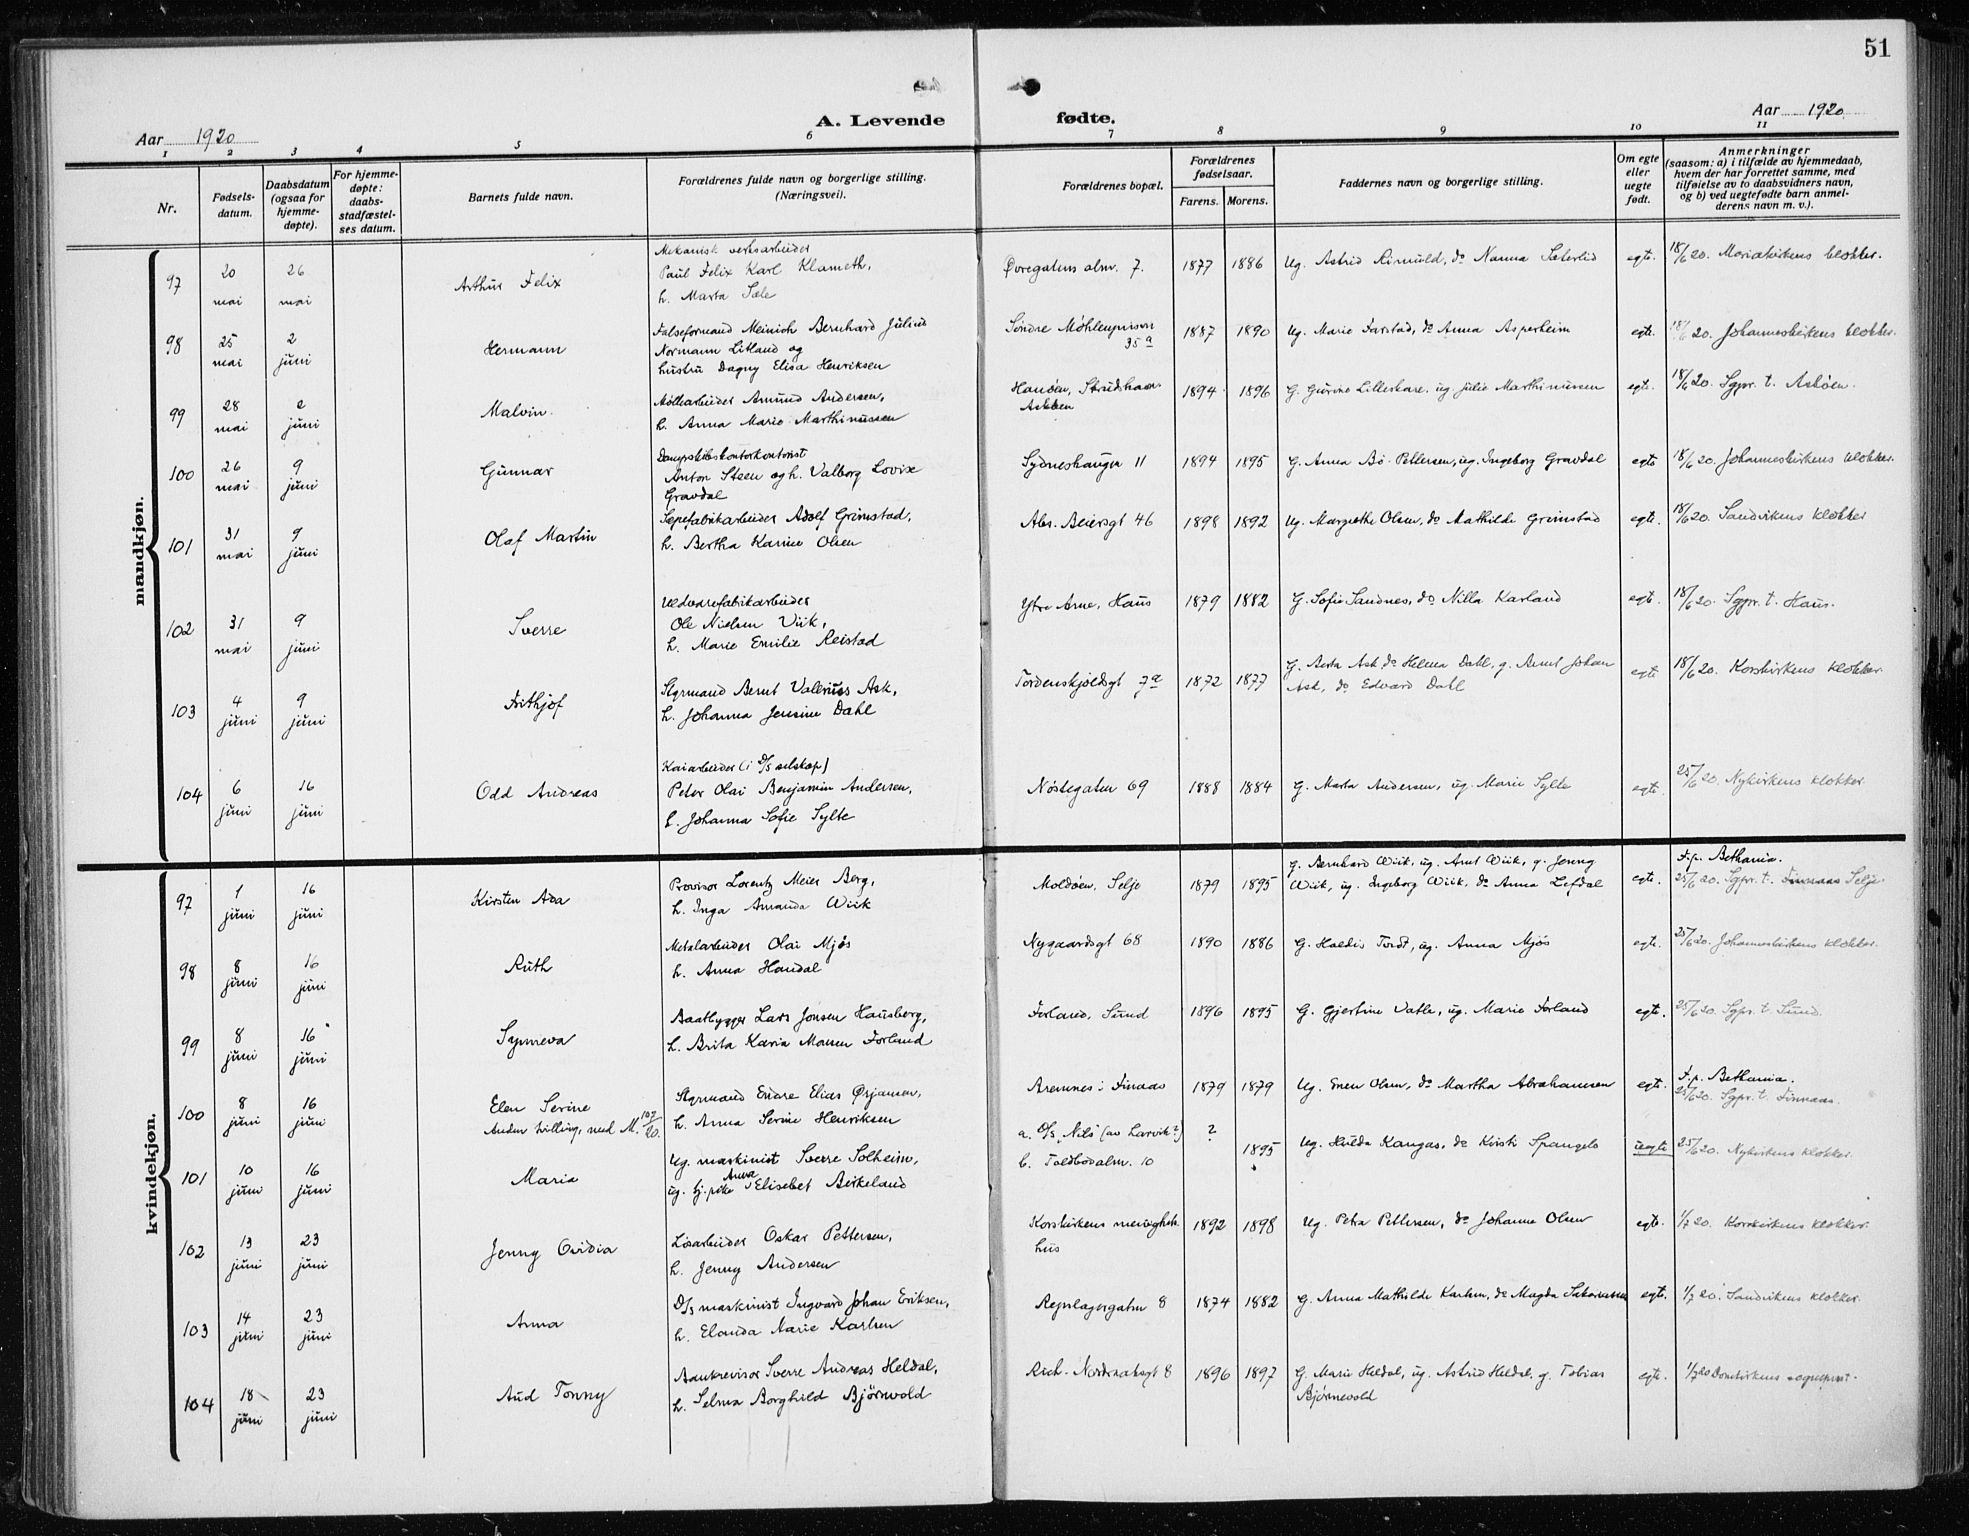 51
A. Levende fødte.
Aar 1920
Aar 1920
1 2 3 4 5 6 7 8 9 10 11
Nr.
Fødsels-
datum.
Daabsdatum
(ogsaa for
hjemme-
døpte).
For hjemme-
døpte:
daabs-
stadfæstel-
ses datum.
Barnets fulde navn.
Forældrenes fulde navn og borgerlige stilling.
(Næringsvei).
Forældrenes bopæl.
Forældrenes
fødselsaar.
Farens. Morens.
Faddernes navn og borgerlige stilling.
Om egte
eller
uegte
født.
Anmerkninger
(saasom: a) i tilfælde av hjemmedaab,
hvem der har forrettet samme, med
tilføielse av to daabsvidners navn,
og b) ved uegtefødte barn anmel-
derens navn m. v.).
mandkjøn.
97 20 mai 26 mai Arthur Felix
Mekanisk verksarbeider
Paul Felix Karl Klameth,
h. Marta Sæle
Øvregatens alm. 7. 1877 1886 Ug. Astrid Rimuld, do Nanna Sæterlid egte. 18/6 20. Mariakirkens klokker.
98 25 mai 2 juni Hermann
Falseformand Meinich Bernhard Julius
Normann Litland og
hustru Dagny Elisa Henriksen
Søndre Møhlenprisen 35a 1887 1890 Ug. Marie Farstad, do Anna Asperheim egte. 18/6 20. Johanneskirkens klokker.
99 28 mai 2 juni Malvin.
Møllearbeider Amund Andersen,
h. Anna Marie Marthinussen
Hanøen, Strudshavn
Askøen
1894 1896 G. Gurine Lillerhare. ug. Julie Marthinussen egte. 18/6 20. Sgpr. t. Askøen.
100 26 mai 9 juni Gunnar
Dampskibskontorkontorist
Anton Steen og h. Valborg Lovise
Gravdal
Sydneshaugen 11 1894 1895 G. Anna Bø-Pettersen, ug. Ingeborg Gravdal egte 18/6 20. Johanneskirkens klokker.
101 31 mai 9 juni Olaf Martin
Sepefabrikarbeider Adolf Grimstad,
h. Bertha Karine Olsen
Abr. Beiersgt 46 1898 1892 Ug. Margrethe Olsen, do Mathilde Grimstad egte. 18/6 20. Sandvikens klokker
102 31 mai 9 juni Sverre
Uldvarefabrikarbeider
Ole Nielsen Viik,
h. Marie Emilie Reistad
Ytre Arne, Haus 1879 1882 G. Sofie Sandnes, do Nilla Karland egte. 18/6 20. Sgpr. t. Haus.
103 4 juni 9 juni Frithjof
Styrmand Bernt Valerius Ask,
h. Johanna Jensine Dahl
Tordenskjoldsgt 7a 1872 1877
G. Berta Ask, do Helena Dahl, g. Arnt Johan
Ask, do Edvard Dahl
egte 18/6 20. Korskirkens klokker.
104 6 juni 16 juni Odd Andreas
Kaiarbeider (i D/S selskap)
Peter Olai Benjamin Andersen,
h. Johanna Sofie Sylte
Nøstegaten 69 1888 1884 G. Marta Andersen, ug. Marie Sylte egte. 25/6 20. Nykirkens klokker
kvindekjøn.
97 1 juni 16 juni Kirsten Ada
Provisor Lorentz Meier Berg,
h. Inga Amanda Wiik
Moldøen, Selje 1879 1895
G. Bernhard Wiik, ug. Arnt Wiik, g. Jenny
Wiik, ug. Ingeborg Wiik, do Anna Lefdal
egte. F.p. Bethania.
25/6 20. Sgpr. t. Finnaas Selje
98 8 juni 16 juni Ruth
Metalarbeider Olai Mjøs
h. Anna Haudal
Nygaardsgt 68 1890 1886 G. Haldis Tvedt, ug. Anna Mjøs egte. 25/6 20. Johanneskirkens klokker.
99 8 juni 16 juni Synneva
Baatbygger Lars Jonsen Hausberg,
h. Brita Karia Monsen Forland
Forland, Sund 1896 1895 G. Gjertine Vatle, ug. Marie Forland egte. 25/6 20. Sgpr. t. Sund.
100 8 juni 16 juni Elen Serine
Anden tvilling, med M. 107/20.
Styrmand Endre Elias Ørjansen,
h. Anna Serine Henriksen
Bremnes i Finaas 1879 1879 Ug. Enen Olsen, do Martha Abrahamsen egte. F.p. Bethania.
25/6 20. Sgpr. t. Finnaas.
101 10 juni 16 juni Maria
Ug. maskinist Sverre Solheim,
ug. tj. pike Anna Elisebet Birkeland
a. D/S "Nils" (av Larvik?) ?
b. Toldbodalm. 10 1895
Ug. Hulda Kangas, do Kristi Spangelo uegte 25/6 20. Nykirkens klokker.
102 13 juni 23 juni Jenny Ovidia
Løsarbeider Oskar Pettersen,
h. Jenny Andersen
Korskirkens menighets
hus
1892 1898 Ug. Petra Pettersen, do Johanna Olsen egte. 1/7 20. Korskirkens klokker.
103 14 juni 23 juni Anna
D/S maskinist Ingvard Johan Eriksen,
h. Elanda Marie Karlsen
Repslagergaten 8 1874 1882 G. Anna Mathilde Karlsen, do Magda Jakobsen egte. 1/7 20. Sandvikens klokker.
104 18 juni 23 juni Aud Tonny
Bankrevisor Sverre Andreas Heldal,
h. Selma Borghild Bjørnvold
Rich. Nordraaksgt 8 1896 1897
G. Marie Heldal, ug. Astrid Heldal, g. Tobias
Bjørnevold
egte. 1/7 20 Domkirkens sogneprest.